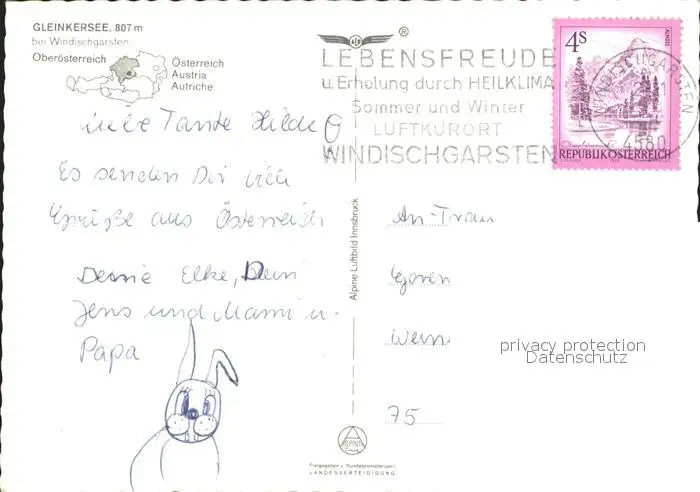 GLEINKERSEE, 807 m
bei Windischgarsten
Oberösterreich
Österreich
Austria
Autriche
®
LEBENSFREUDE
u. Erholung durch HEILKLIMA
Sommer und Winter
LUFTKURORT
WINDISCHGARSTEN
4S
ALMSEE
REPUBLIK ÖSTERREICH
WINDISCHGARSTEN
4580
Liebe Tante Hilde
Es senden Dir viele
Grüße aus Österreich
Deine Elke, Dein
Jens und Mami u.
Papa
Alpine Luftbild Innsbruck
An Frau
75
privacy protection
Datenschutz
ALPINE
Freigegeben v. Bundesministerium f.
LANDESVERTEIDIGUNG